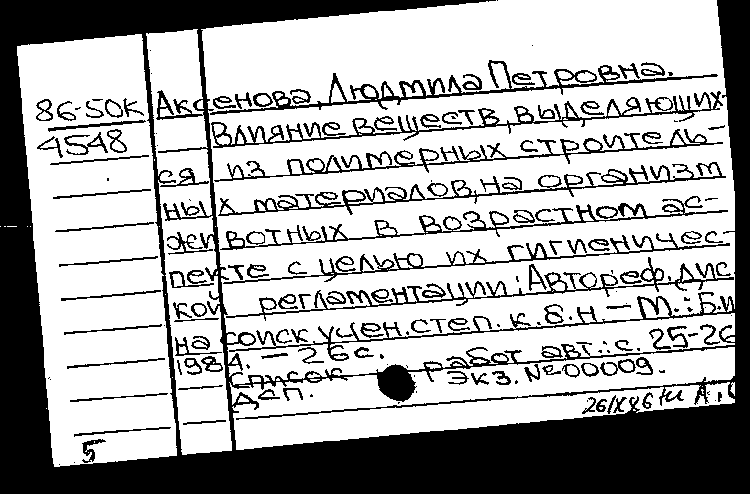 86-50К Аксенова, Людмила Петровна.
4548 Влияние веществ, выделяющих-
ся из полимерных строитель-
ных материалов, на организм
животных в возрастном ас-
пекте с целью их гигиеничес-
кой регламентации: Автореф. дис
на соиск. учен. степ. к. б. н. — М.: Б.и
1984. — 26 с.
Список работ авт.: с. 25-26
ДСП. Экз. №00009.
26/X86
5